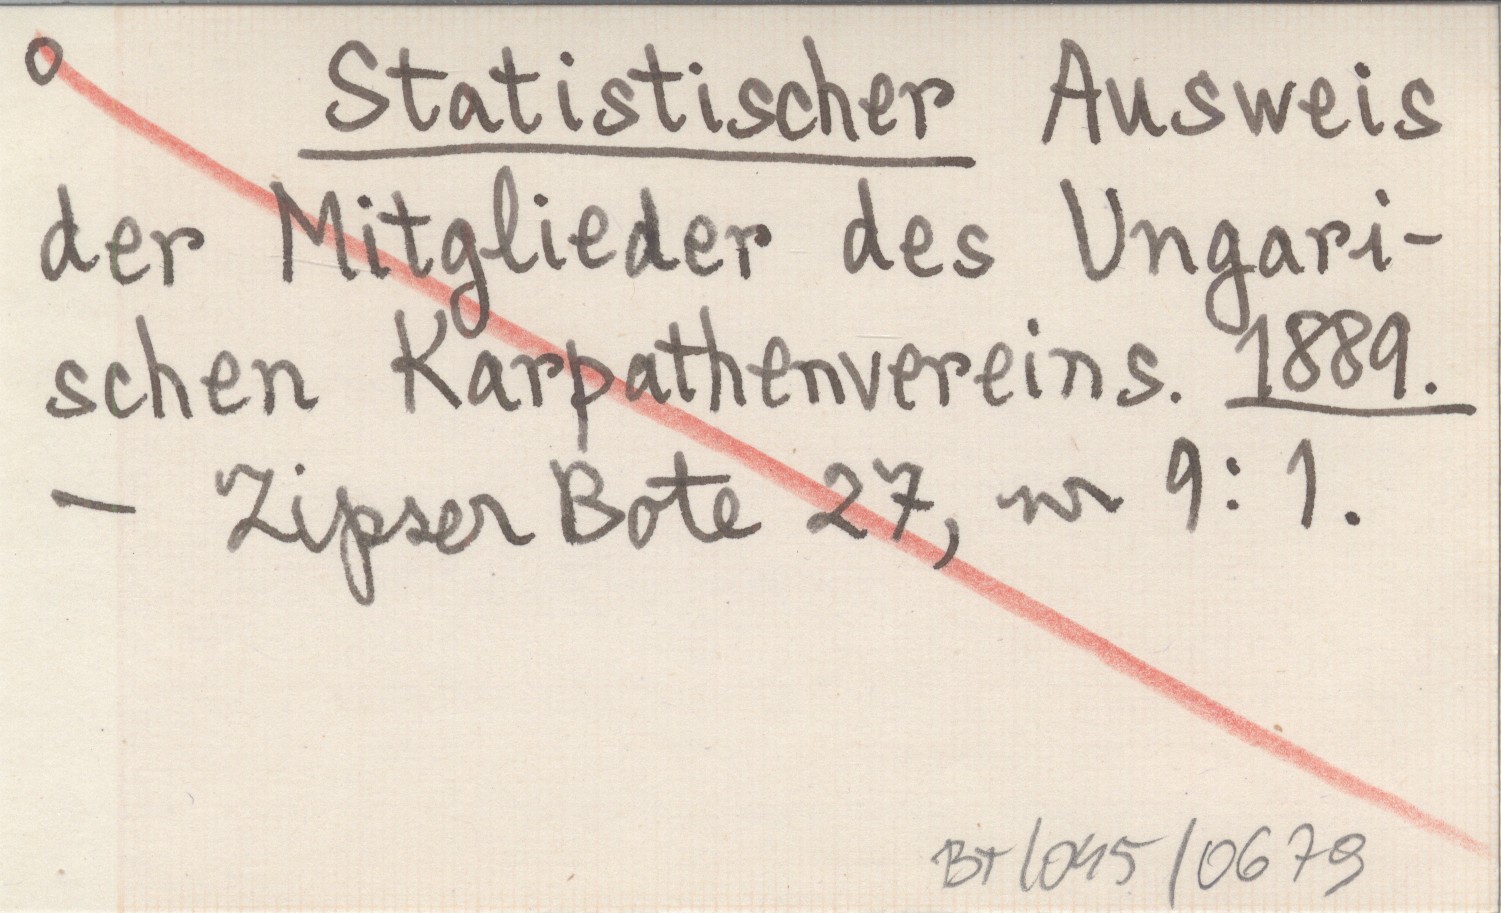 o Statistischer Ausweis
der Mitglieder des Ungari-
schen Karpathenvereins. 1889.
— Zipser Bote 27, nr 9: 1.
BT/045/0679